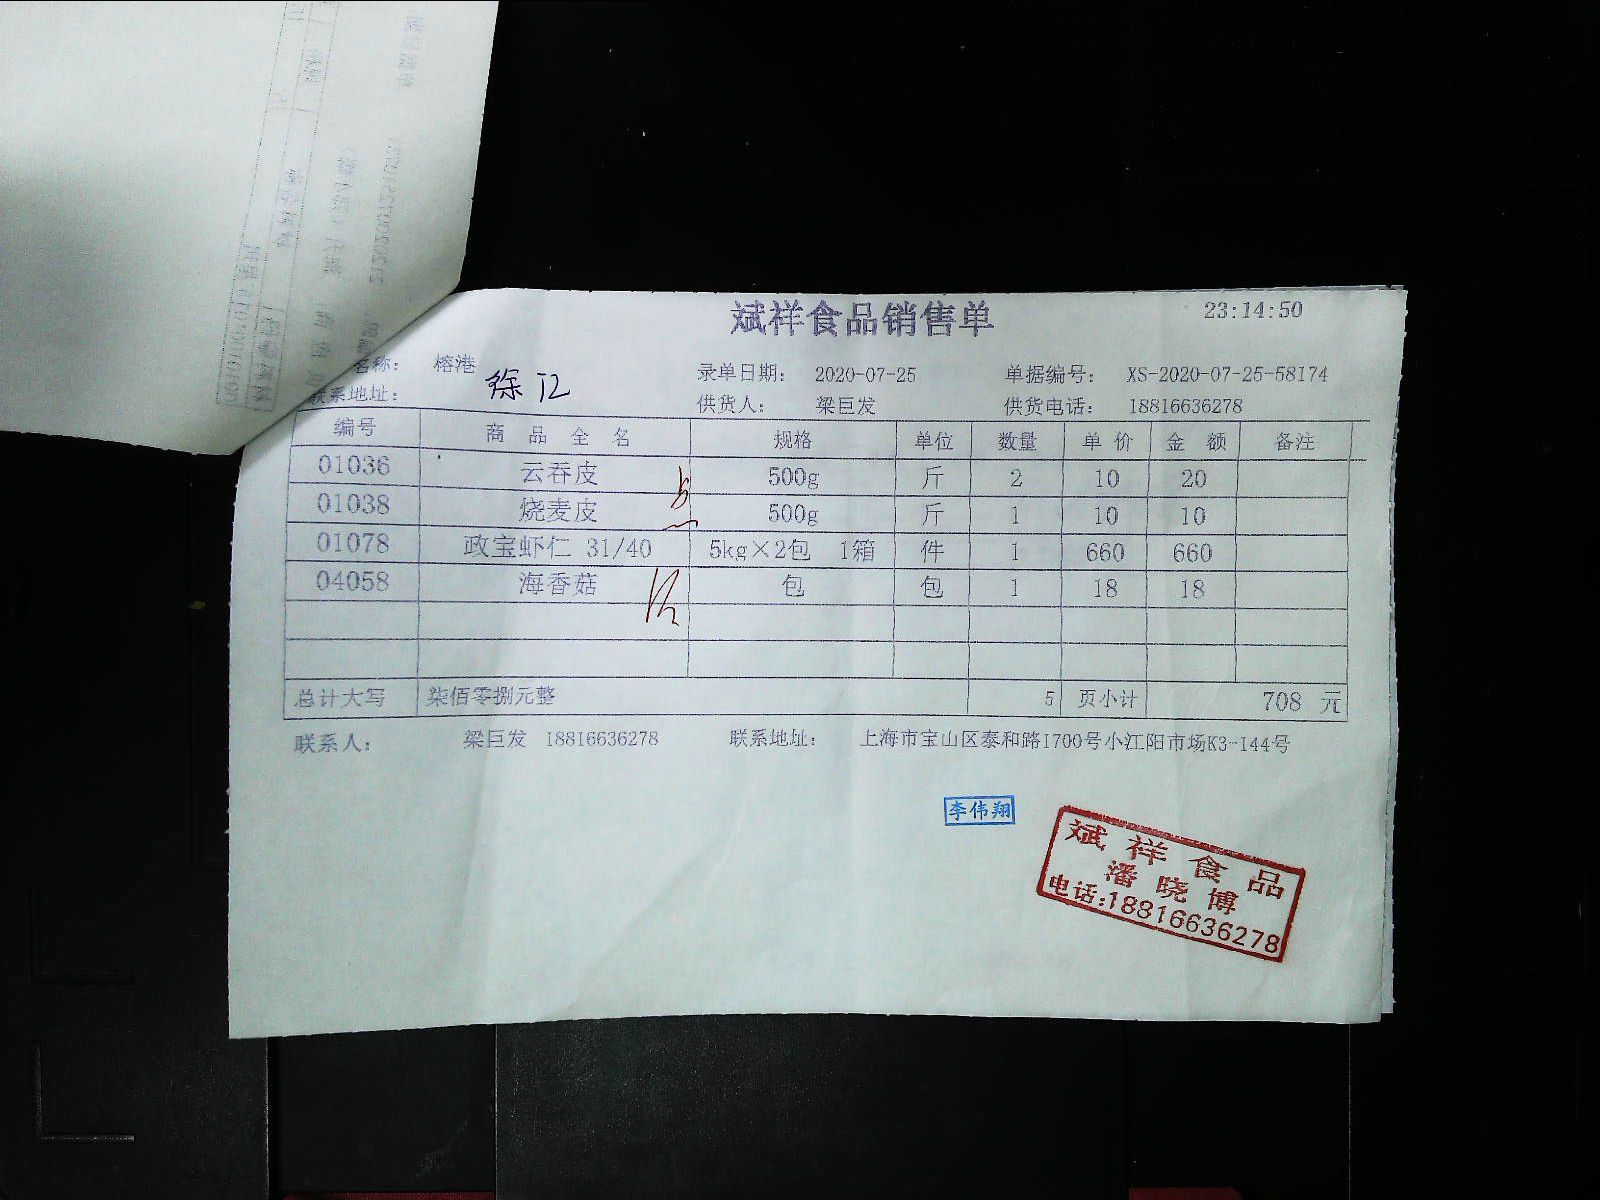 斌祥食品销售单 23:14:50
名称： 榕港 录单日期： 2020-07-25 单据编号： XS-2020-07-25-58174
联系地址： 徐汇 供货人： 梁巨发 供货电话： 18816636278
编号 商品全名 规格 单位 数量 单价 金额 备注
01036 云吞皮 500g 斤 2 10 20
01038 烧麦皮 500g 斤 1 10 10
01078 政宝虾仁 31/40 5kg×2包 1箱 件 1 660 660
04058 海香菇 包 包 1 18 18
总计大写 柒佰零捌元整 5 页小计 708 元
联系人： 梁巨发 18816636278 联系地址： 上海市宝山区泰和路1700号小江阳市场K3-144号
李伟翔
斌祥食品
潘晓博
电话:18816636278